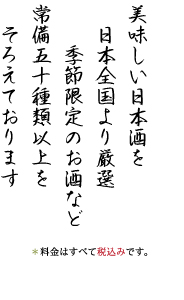 美味しい日本酒を
日本全国より厳選
季節限定のお酒など
常備五十種類以上を
そろえております
＊料金はすべて税込みです。